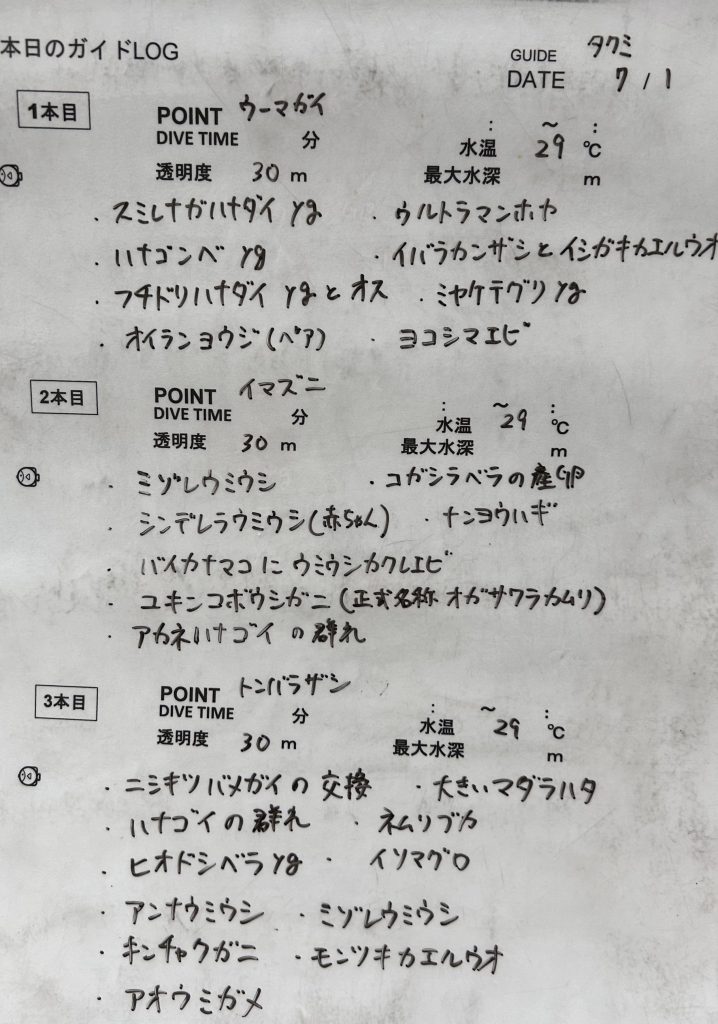 本日のガイドLOG
GUIDE タクミ
DATE 7 / 1
1本目 POINT ウーマガイ : ～ :
DIVE TIME 分 水温 29 ℃
透明度 30 m 最大水深 m
・スミレナガハナダイ yg ・ウルトラマンホヤ
・ハナゴンベ yg ・イバラカンザシとイシガキカエルウオ
・フチドリハナダイ ygとオス ・ミヤケテグリ yg
・オイランヨウジ(ペア) ・ヨコシマエビ
2本目 POINT イマズニ : ～ :
DIVE TIME 分 水温 29 ℃
透明度 30 m 最大水深 m
・ミゾレウミウシ ・コガシラベラの産卵
・シンデレラウミウシ(赤ちゃん) ・ナンヨウハギ
・バイカナマコにウミウシカクレエビ
・ユキンコボウシガニ(正式名称 オガサワラカムリ)
・アカネハナゴイの群れ
3本目 POINT トンバラザシ : ～ :
DIVE TIME 分 水温 29 ℃
透明度 30 m 最大水深 m
・ニシキツバメガイの交換 ・大きいマダラハタ
・ハナゴイの群れ ・ネムリブカ
・ヒオドシベラ yg ・イソマグロ
・アンナウミウシ ・ミゾレウミウシ
・キンチャクガニ ・モンツキカエルウオ
・アオウミガメ